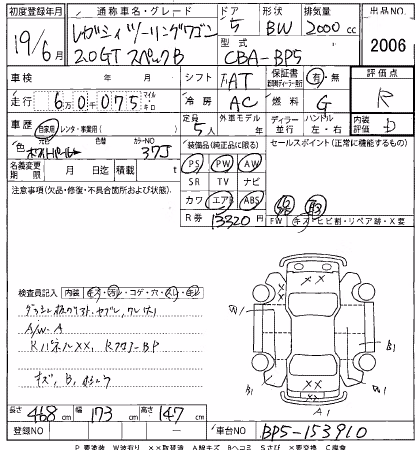 初度登録年月 通称車名・グレード ドア 形状 排気量 出品NO.
19/6月 レガシィツーリングワゴン 5 BW 2000cc 2006
2.0GT スペックB 型式 CBA-BP5
車検 年 月 シフト FAT 保証書 有・無 評価点
走行 6万0千075 マイル キロ 冷房 AC 燃料 G R
車歴 自家用 レンタ・事業用( ) 定員 5人 外車モデル 年 ディーラー 並行 ハンドル 左・右 内装評価 D
色 元色 色替 カラーNO 37J 装備品(純正品に限る) セールスポイント(正常に機能するもの)
名義変更期限 月 日迄 積載 t PS PW AW
注意事項(欠品・修復・不具合箇所および状態) SR TV ナビ
カワ エアB ABS
R券 13320円 FW キズ・ヒビ割・リペア跡・X要
検査員記入 内装
A/W-A
RパネルXX, RフロアーBP
キズ, B,
長さ 468cm 幅 173cm 高さ 147cm
A1
B1
XX
A1
登録NO 車台NO BP5-153910
P 要塗装 W波有り ××取替済 A線キズ Bヘコミ Sさび X要交換 C腐食